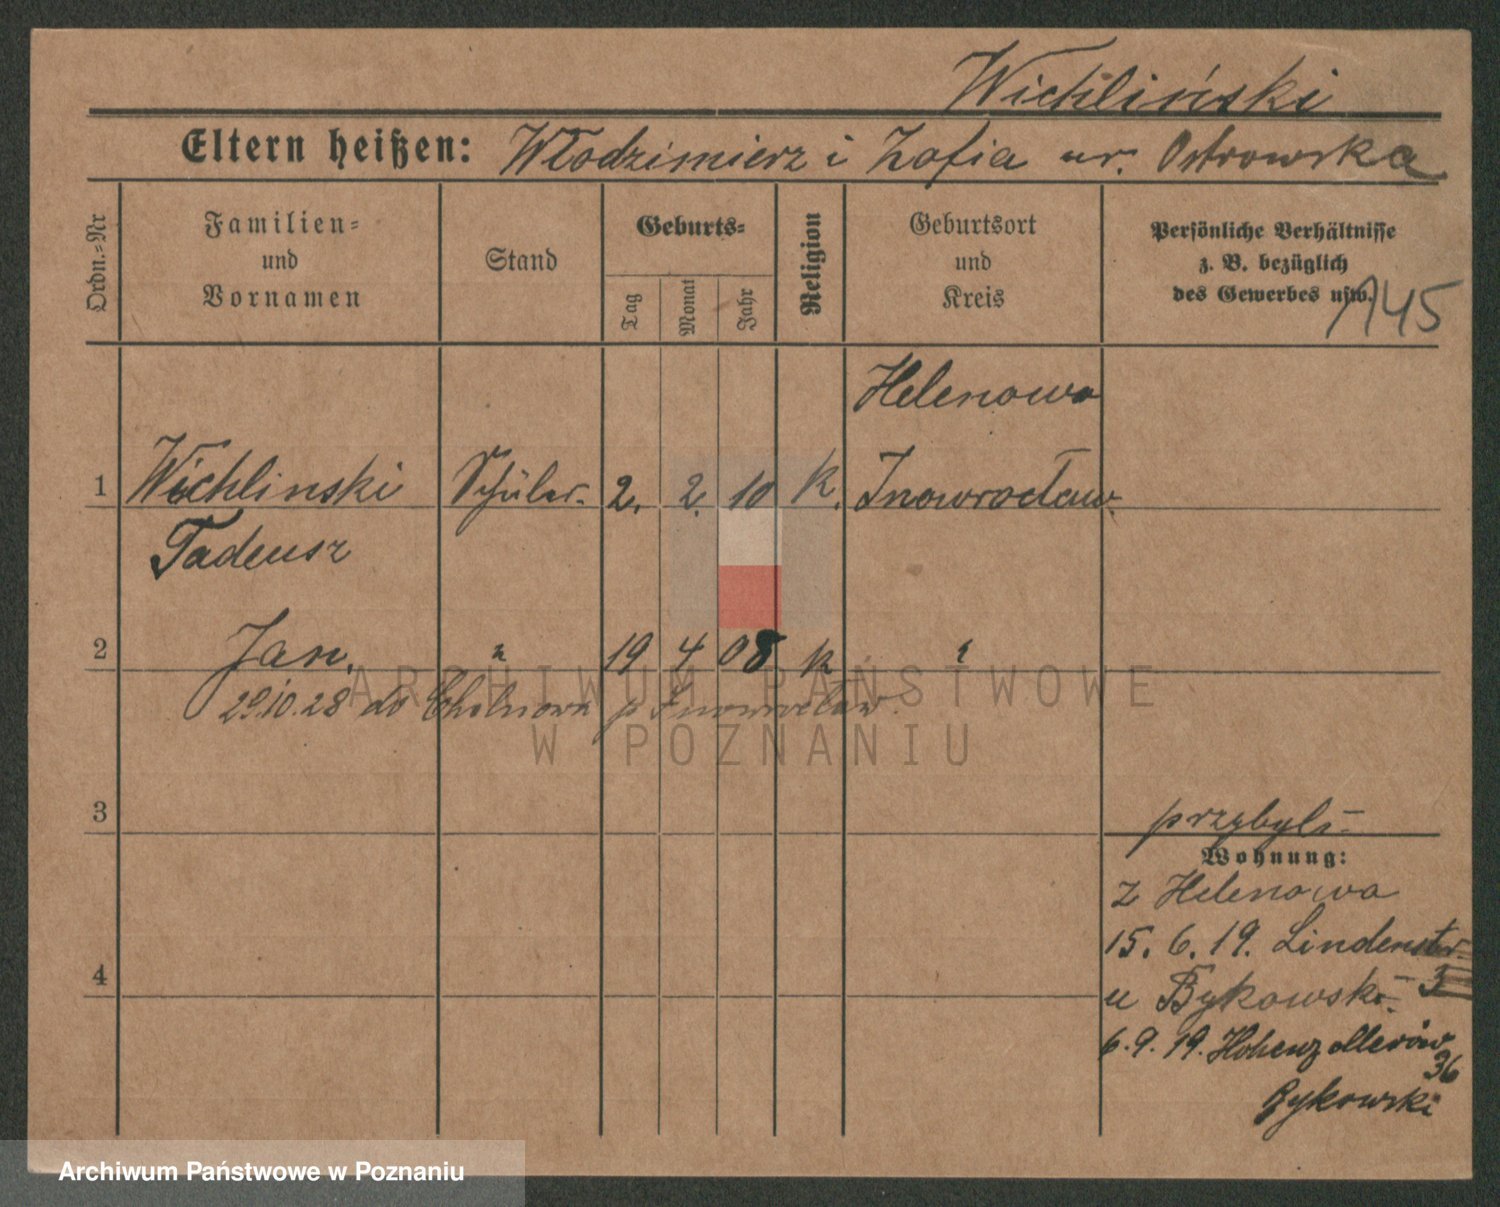 Wichliński
Eltern heißen: Włodzimierz i Zofia ur. Ostrowska
Ordn.-Nr
Familien- und Vornamen
Stand
Geburts-
Tag
Monat
Jahr
Religion
Geburtsort und Kreis
Persönliche Verhältnisse
z. B. bezüglich
des Gewerbes usw.
145
Helenowo
1 Wichlinski Schüler. 2. 2. 10 K. Inowrocław.
Tadeusz
2 Jan. " 19 4 08 K "
29.10.28 do p. Inowrocław.
3
przybyli
Wohnung:
z Helenowa
15. 6. 19. Lindenstr.
4
3
u Bykowski
6. 9. 19. Hohenzollerów
36
Bykowski
ARCHIWUM PAŃSTWOWE
W POZNANIU
Archiwum Państwowe w Poznaniu